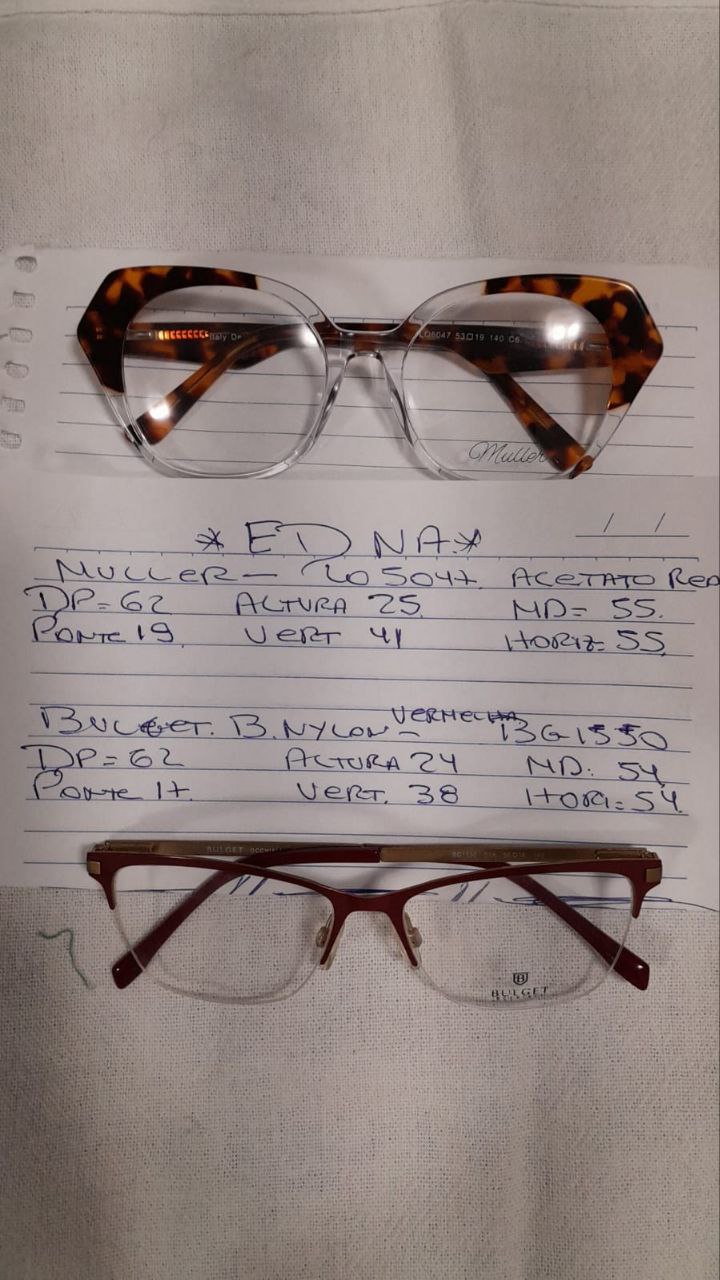 Italy De
LO6047 53□19 140 C6.
Muller
* EDNA *
/ /
MULLER - LO 5047. ACETATO RED
DP=62 ALTURA 25. MD= 55.
PONTE 19. VERT 41 HORIZ= 55
BULGET. B. NYLON - VERMELHA BG1550
DP=62 ALTURA 24 MD: 54
PONTE 17. VERT. 38 HORI= 54.
BULGET OCCHIALI
BULGET